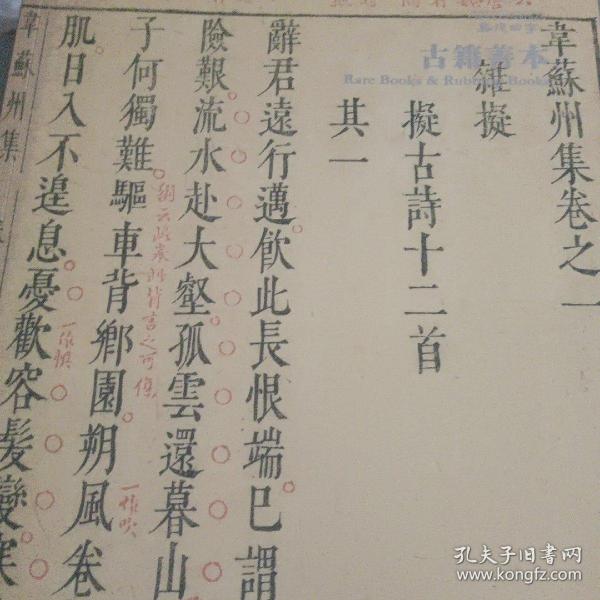 韋蘇州集卷之一
雜擬
擬古詩十二首
其一
辭君遠行邁飲此長恨端巳謂
險艱流水赴大壑孤雲還暮山
子何獨難驅車背鄉園朔風卷
一作吹
肌日入不遑息憂歡容髮變寒
一作懼
韋蘇州集
古籍善本
Rare Books & Rubbing Books
孔夫子旧书网
www.kongfz.com